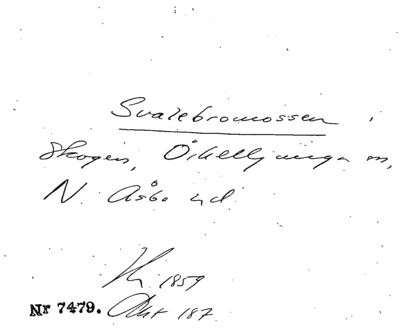 Svalebromossen i
Skogen, Örkelljunga sn,
N. Åsbo hd
1859
Nr 7479. Akt 187